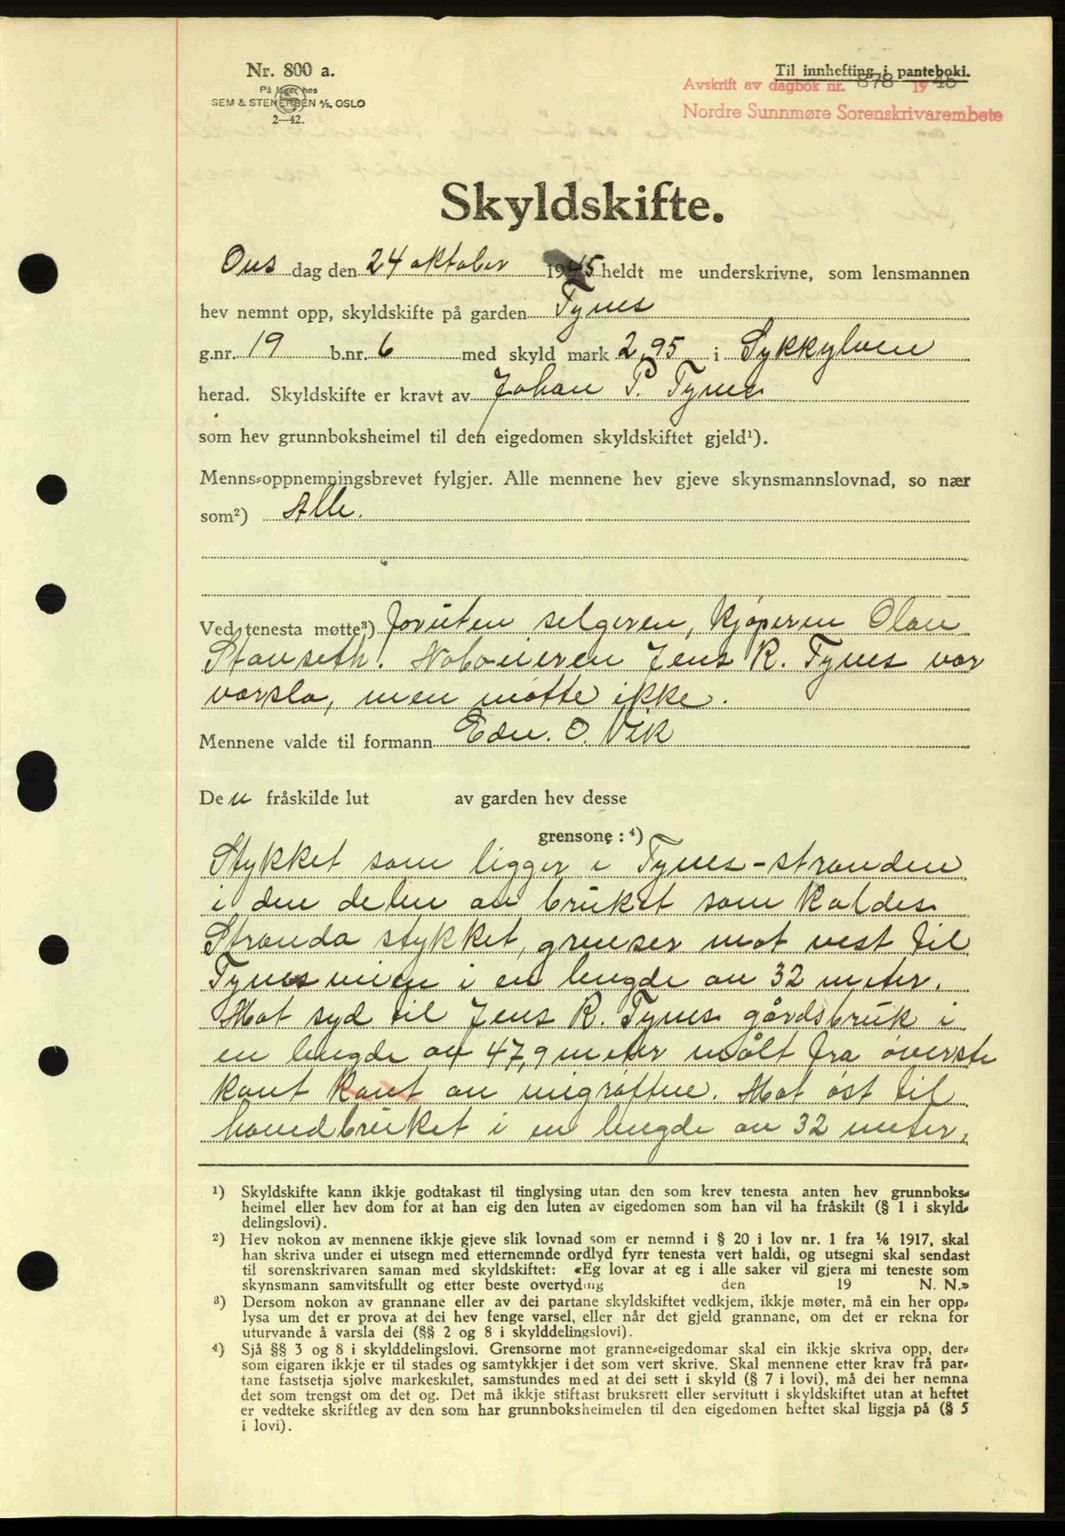 Nr. 800 a.
På lager hos
SEM & STENERSEN A/S, OSLO
2—42.
Til innhefting i panteboki.
Avskrift av dagbok nr. 878 1945
Nordre Sunnmøre Sorenskrivarembete
Skyldskifte.
Ons dag den 24 oktober 1945 heldt me underskrivne, som lensmannen
hev nemnt opp, skyldskifte på garden Tynes
g.nr. 19 b.nr. 6 med skyld mark 2,95 i Sykkylven
herad. Skyldskifte er kravt av Johan P. Tynes
som hev grunnboksheimel til den eigedomen skyldskiftet gjeld¹).
Menns-oppnemningsbrevet fylgjer. Alle mennene hev gjeve skynsmannslovnad, so nær
som²) Alle.
Ved tenesta møtte³) foruten selgeren, kjøperen Olav
Stavseth. Naboieren Jens R. Tynes var
varsla, men møtte ikke.
Mennene valde til formann Edv. O. Vik
De n fråskilde lut av garden hev desse
grensone:⁴)
Stykket som ligger i Tynes-stranden
i den delen av bruket som kaldes
Stranda stykket, grenser mot vest til
Tynesveien i en lengde av 32 meter.
Mot syd til Jens R. Tynes gårdsbruk i
en lengde av 47,9 meter målt fra øverste
kant kant av veigrøften. Mot øst til
hovedbruket i en lengde av 32 meter,
¹) Skyldskifte kann ikkje godtakast til tinglysing utan den som krev tenesta anten hev grunnboks-
heimel eller hev dom for at han eig den luten av eigedomen som han vil ha fråskilt (§ 1 i skyld-
delingslovi).
²) Hev nokon av mennene ikkje gjeve slik lovnad som er nemnd i § 20 i lov nr. 1 fra ⅙ 1917, skal
han skriva under ei utsegn med etternemnde ordlyd fyrr tenesta vert haldi, og utsegni skal sendast
til sorenskrivaren saman med skyldskiftet: «Eg lovar at eg i alle saker vil gjera mi teneste som
skynsmann samvitsfullt og etter beste overtyding den 19 N. N.»
³) Dersom nokon av grannane eller av dei partane skyldskiftet vedkjem, ikkje møter, må ein her opp-
lysa um det er prova at dei hev fenge varsel, eller når det gjeld grannane, om det er rekna for
uturvande å varsla dei (§§ 2 og 8 i skylddelingslovi).
⁴) Sjå §§ 3 og 8 i skylddelingslovi. Grensorne mot granne-eigedomar skal ein ikkje skriva opp, der-
som eigaren ikkje er til stades og samtykkjer i det som vert skrive. Skal mennene etter krav frå par-
tane fastsetja sjølve markeskilet, samstundes med at dei sett i skyld (§ 7 i lovi), må dei her nemna
det som trengst om det og. Det må ikkje stiftast bruksrett eller servitutt i skyldskiftet utan at heftet
er vedteke skriftleg av den som har grunnboksheimelen til den eigedomen heftet skal liggja på (§ 5
i lovi).